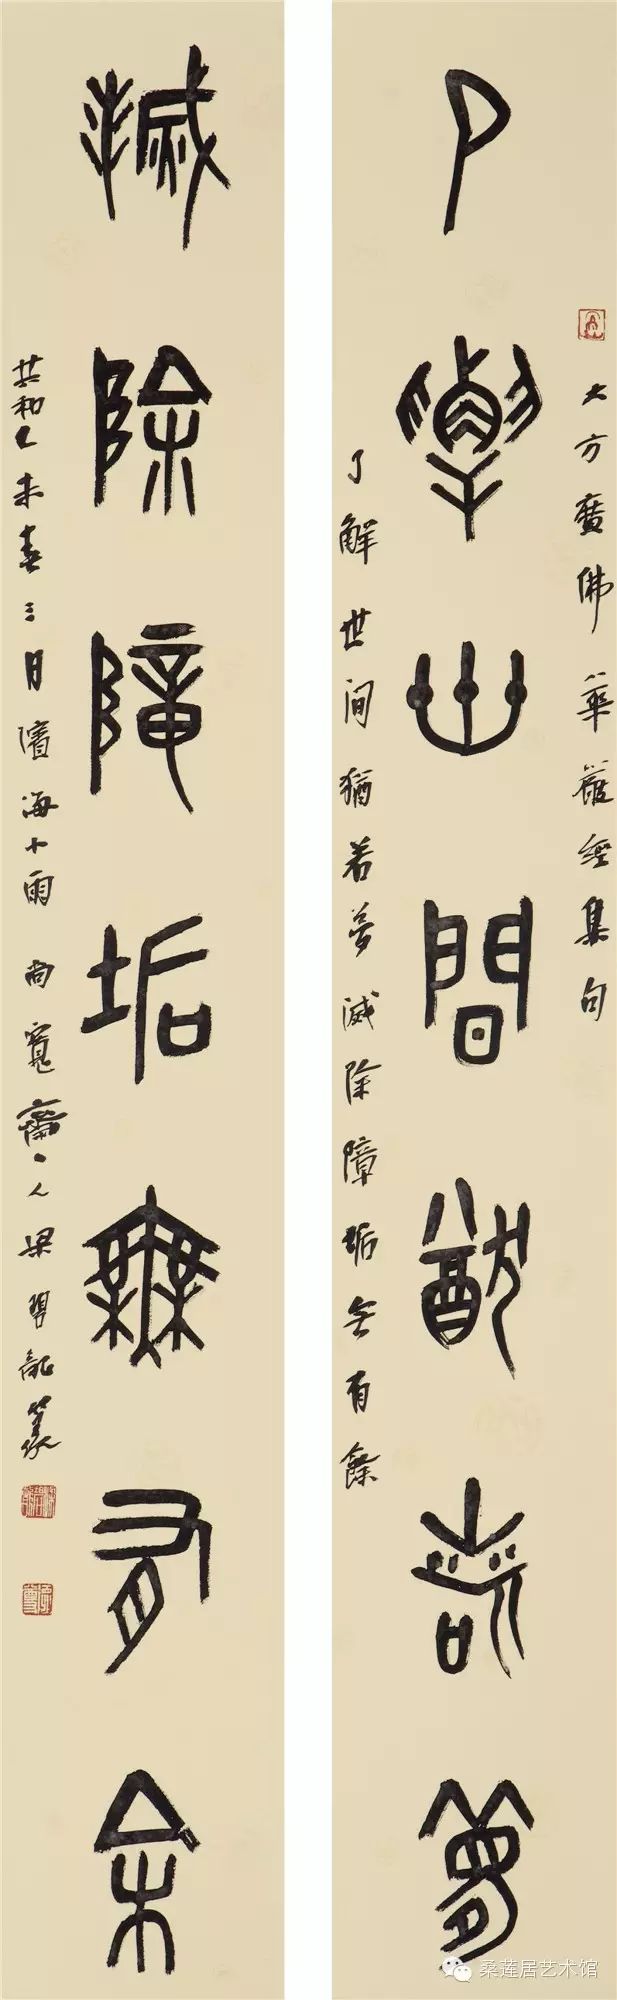 了解世间猶若夢
大方廣佛華嚴經集句
了解世间猶若夢滅除障垢無有餘
滅除障垢無有余
共和乙未春三月濱海十雨尚寬齋人梁碧龍篆
桑莲居艺术馆